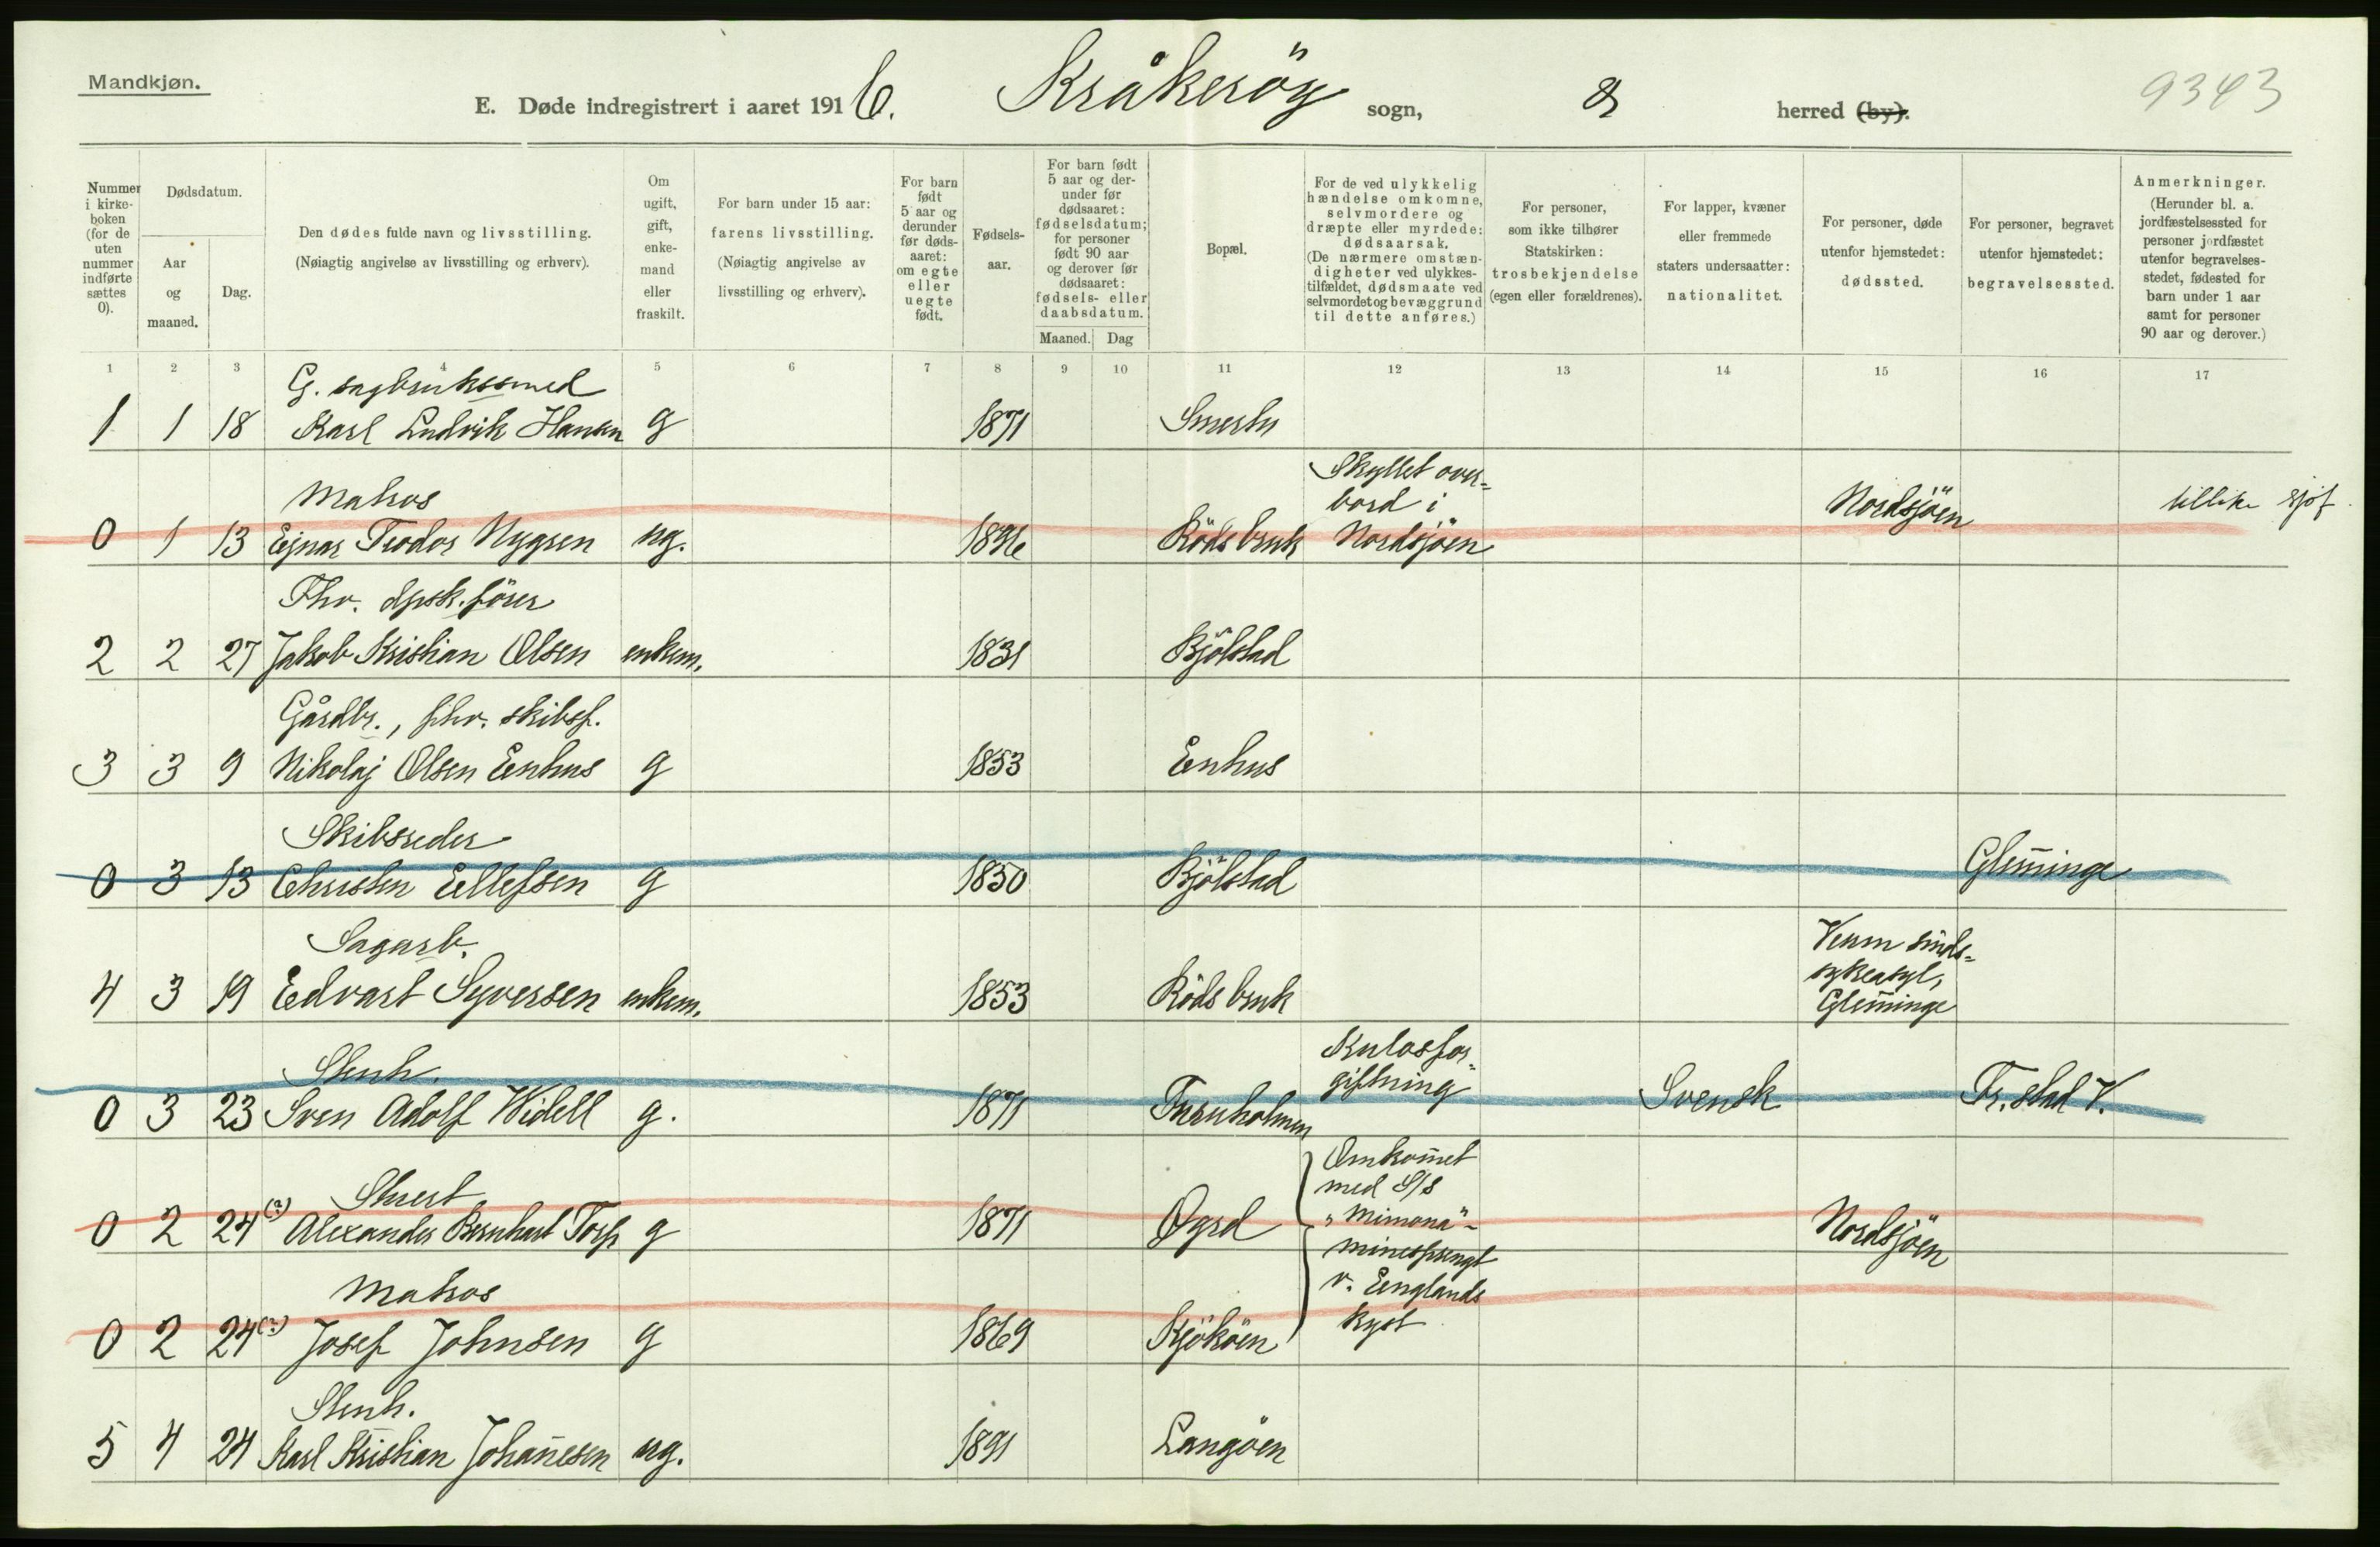 Mandkjøn.
E. Døde indregistrert i aaret 1916. Kråkeröy sogn, & herred (by).
9343
Nummer i kirke-boken (for de uten nummer indførte sættes 0).
Dødsdatum.
Aar og maaned.
Dag.
Den dødes fulde navn og livsstilling.
(Nøiagtig angivelse av livsstilling og erhverv).
Om ugift, gift, enke-mand eller fraskilt.
For barn under 15 aar: farens livsstilling.
(Nøiagtig angivelse av livsstilling og erhverv).
For barn født 5 aar og derunder før døds-aaret: om egte eller uegte født.
Fødsels-aar.
For barn født 5 aar og der-under før dødsaaret: fødselsdatum; for personer født 90 aar og derover før dødsaaret: fødsels- eller daabsdatum.
Maaned. Dag
Bopæl.
For de ved ulykkelig hændelse omkomne, selvmordere og dræpte eller myrdede: dødsaarsak. (De nærmere omstæn-digheter ved ulykkes-tilfældet, dødsmaate ved selvmordet og bevæggrund til dette anføres.)
For personer, som ikke tilhører Statskirken: trosbekjendelse (egen eller forældrenes).
For lapper, kvæner eller fremmede staters undersaatter: nationalitet.
For personer, døde utenfor hjemstedet: dødssted.
For personer, begravet utenfor hjemstedet: begravelsessted.
Anmerkninger. (Herunder bl. a. jordfæstelsessted for personer jordfæstet utenfor begravelses-stedet, fødested for barn under 1 aar samt for personer 90 aar og derover.)
1 2 3 4 5 6 7 8 9 10 11 12 13 14 15 16 17
G. sagbrukssmed
1 1 18 Karl Ludvik Hansen g 1871 Smertu
Matros
Skyllet over=
bord i
0 1 13 Ejnar Teodor Nygren ug. 1896 Röds bruk Nordsjöen Nordsjöen tillike sjöf.
Fhv. dpsk. förer
2 2 27 Jakob Kristian Olsen enkem. 1831 Bjölstad
Gårdbr., fhv. skibsf.
3 3 9 Nikolaj Olsen Enhus g 1853 Enhus
Skibsreder
0 3 13 Christen Ellefsen g 1850 Bjölstad Glem̄inge
Sagarb.
4 3 19 Edvart Syversen enkem. 1853 Röds bruk Veum sinds=
sykeasyl,
Glem̄inge
Stenh.
Kulosfor=
giftning
0 3 23 Sven Adolf Widell g. 1871 Tuenholmen Svensk Fr.stad V.
Stuert
Omkom̄et
med S/S
„Mimona"-
0 2 24(?) Alexander Bernhart Torp g 1871 Øgrd Nordsjöen
minesprengt
v. Englands
kyst
Matros
0 2 24(?) Josef Johnsen g 1869 Kjököen
Stenh.
5 4 24 Karl Kristian Johan̄esen ug. 1891 Langöen